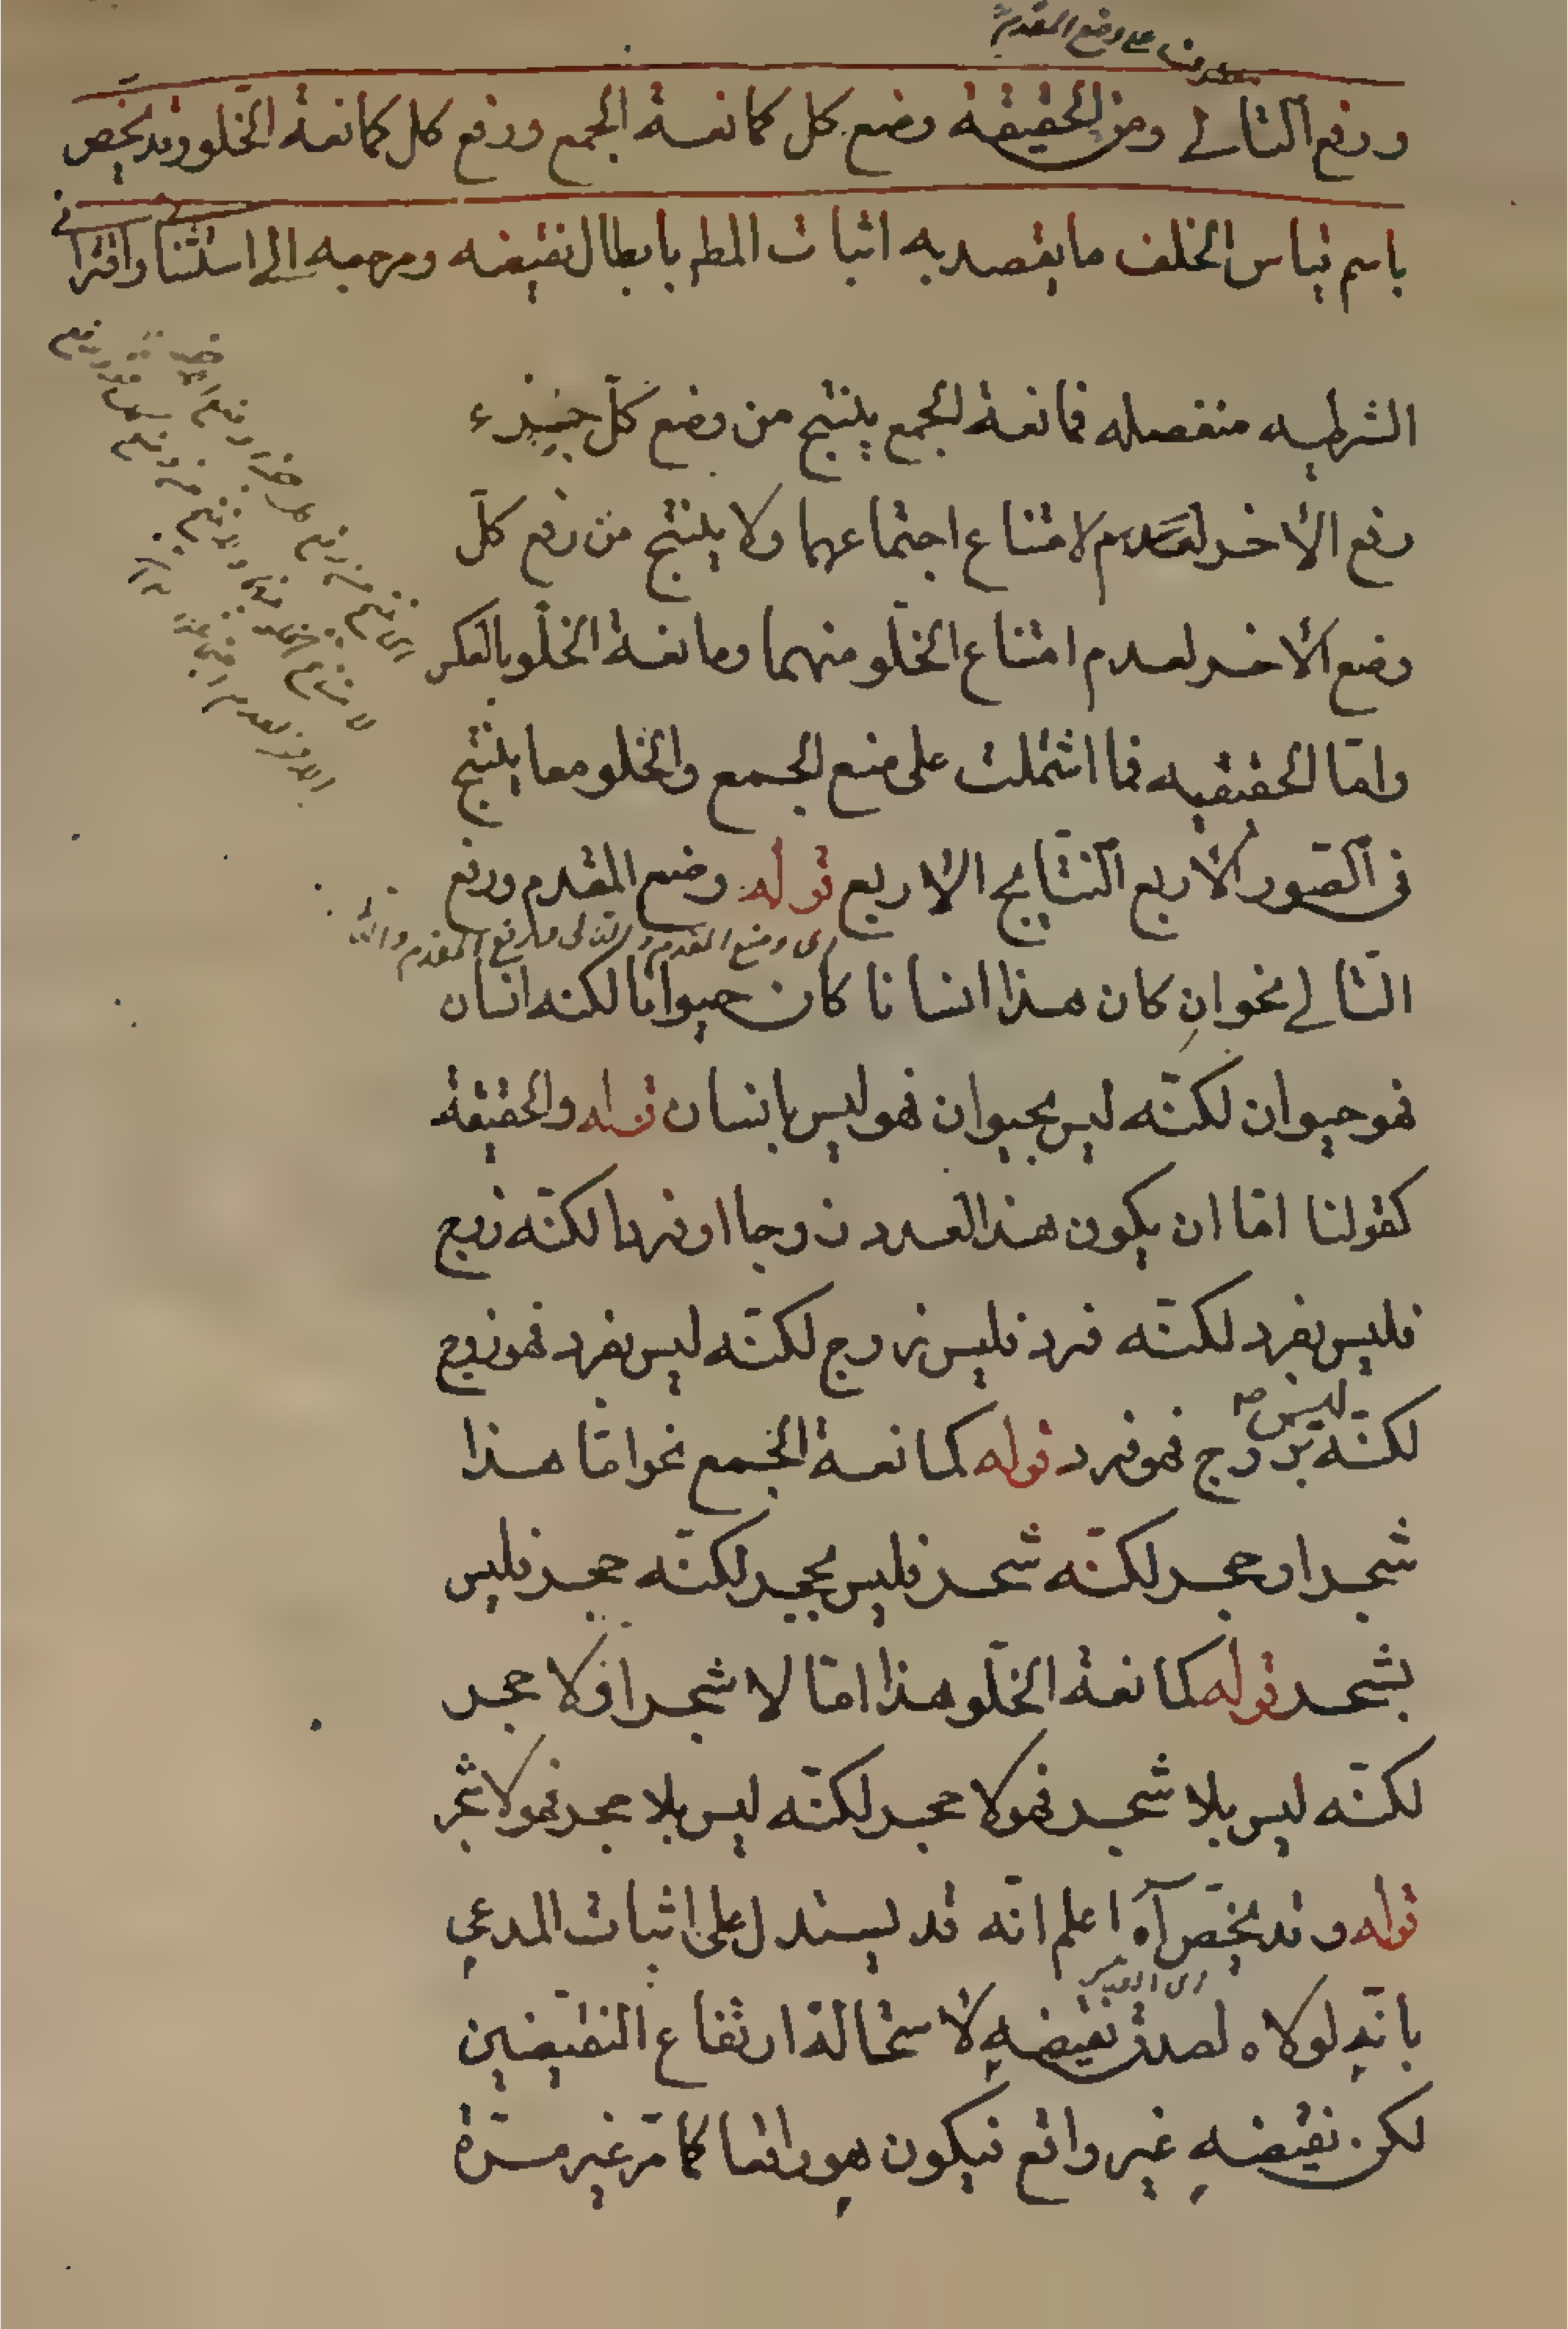 ورفع التالي ومن الحقيقة وضع كل كمانعة الجمع ورفع كل كمانعة الخلو وقد يخص
باسم قياس الخلف ما يقصد به اثبات المط بابطال نقيضه ومرجعه الى استثنائي واقتراني
الشرطيه منفصله فمانعة الجمع ينتج من وضع كلّ جزء
رفع الاخر لامتناع اجتماعهما ولا ينتج من رفع كلّ
وضع الاخر لعدم امتناع الخلّو منهما ومانعة الخلّو بالعكس
وامّا الحقيقيه فما اشتملت على منع الجمع والخلو معا ينتج
فى الصّور الاربع النتّايج الاربع قوله وضع المقدم ورفع
اى وضع المقدم
التّالي نحو انِ كان هذا انسانا كان حيوانا لكنه انسان
فهو حيوان لكنّه ليس بحيوان فهو ليس بانسان قوله والحقيقة
كقولنا امّا ان يكون هذا العدد زوجا او فردا لكنّه زوج
فليس بفرد لكنّه فرد فليس بزوج لكنّه ليس بفرد فهو زوج
ليس صه
لكنّه بزوج فهو فرد قوله كمانعة الجمع نحو امّا هذا
شجر او حجر لكنّه شجر فليس بحجر لكنّه حجر فليس
بشجر قوله كمانعة الخلّو هذا امّا لا شجر او لا حجر
لكنّه ليس بلا شجر فهو لا حجر لكنّه ليس بلا حجر فهو لا شجر
قوله وقد يخصّ آه اعلم انّه قد يستدل على اثبات المدعى
بانّه لولاه لصدق نقيضهِ لاستحالة ارتفاع النقيضين
لكن نقيضهِ غير واقع فيكون هو واقعا كما مرّ غير مرّة